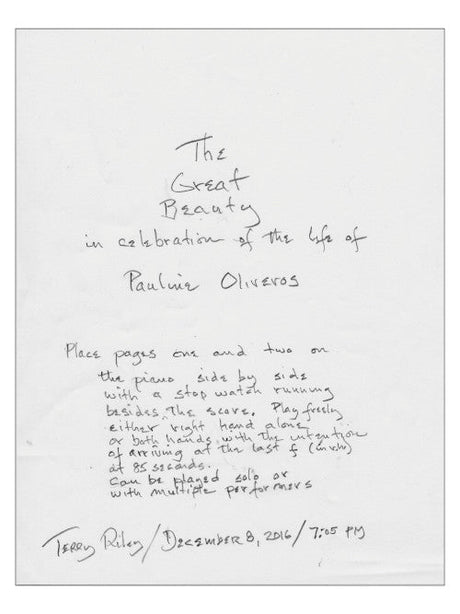 The
Great
Beauty
in celebration of the life of
Pauline Oliveros
Place pages one and two on
the piano side by side
with a stop watch running
besides, the score. Play freely
either right hand alone
or both hands with the intention
of arriving at the last f (in r.h)
at 85 seconds.
Can be played solo or
with multiple performers
Terry Riley/December 8, 2016/7:05 PM